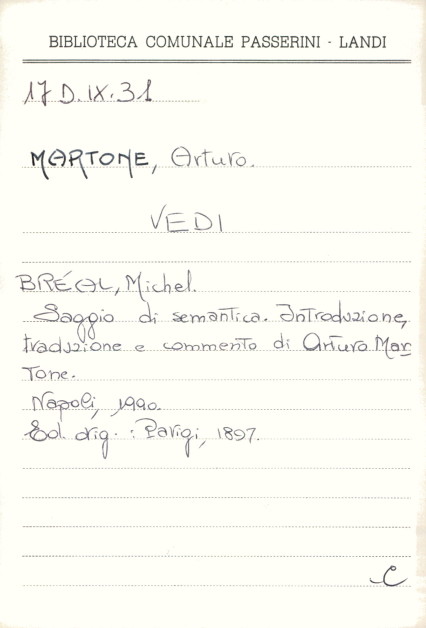 BIBLIOTECA COMUNALE PASSERINI - LANDI
17 D.IX.31
MARTONE, Arturo.
VEDI
BRÉAL, Michel.
Saggio di semantica. Introduzione,
traduzione e commento di Arturo Mar
Tone.
Napoli, 1990.
Ed. orig. : Parigi, 1897.
C